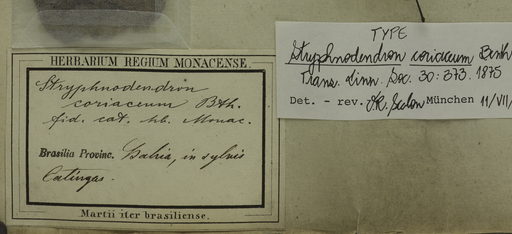 HERBARIUM REGIUM MONACENSE.
Stryphnodendron
coriaceum Bth.
fid. cat. hb. Monac.
Brasilia Provinc. Bahia, in sylvis
Catingas.
Martii iter brasiliense.
TYPE
Stryphnodendron coriaceum Benth
Trans. Linn. Soc. 30: 373. 1875
Det. - rev. München 11/VII/